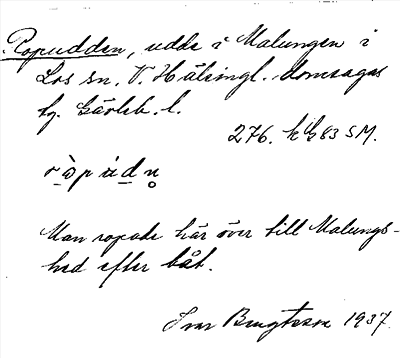 Ropudden, udde i Malungen i
Los sn. V. Hälsingl. domsagas
tg. Gävleb. l.
276. h G 83 S M.
ròpùdn̥
Man ropade här över till Malungs-
hed efter båt.
Ivar Bengtsson 1937